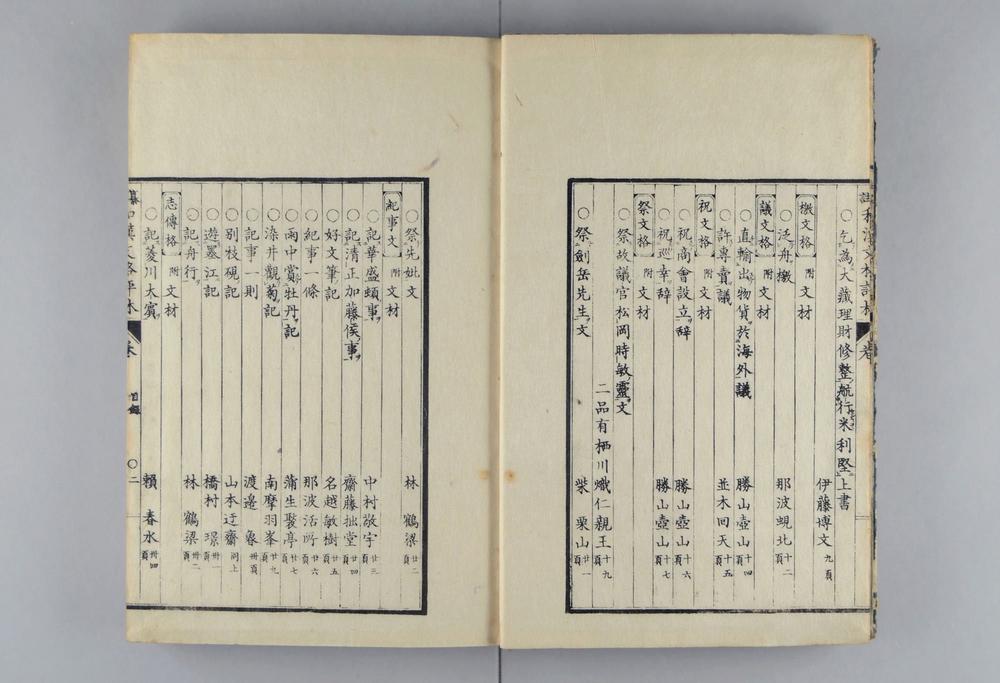 ○乞為大藏理財修整航行米利堅上書
伊藤博文 九頁
檄文格 附文材
○泛舟檄 那波蜆北 十二
議文格 附文材
○直輸出物貨於海外議 勝山壺山 十四頁
○許專賣議 並木回天 十五頁
祝文格 附文材
○祝商會設立辞 勝山壺山 十六頁
○祝巡幸辞 勝山壺山 十七頁
祭文格 附文材
○祭故議官松岡時敏靈文
二品有栖川熾仁親王 十九頁
○祭劍岳先生文 柴栗山 廿一頁
○祭先妣文 林鶴梁 廿二頁
紀事文 附文材
○記華盛頓事 中村敬宇 廿三頁
○記清正加藤侯事 齋藤拙堂 廿四頁
○好文筆記 名越敏樹 廿五頁
○紀事一條 那波活所 廿六頁
○雨中賞牡丹記 蒲生褧亭 廿七頁
○染井觀菊記 南摩羽峯 廿九頁
○記事一則 渡邊魯 卅頁
○別枝硯記 山本迂齋 同上
○遊墨江記 橋村璟 卅一頁
○記舟行 林鶴梁 卅二頁
志傳格 附文材
○記菱川大賓 賴春水 卅四頁
目錄
○二